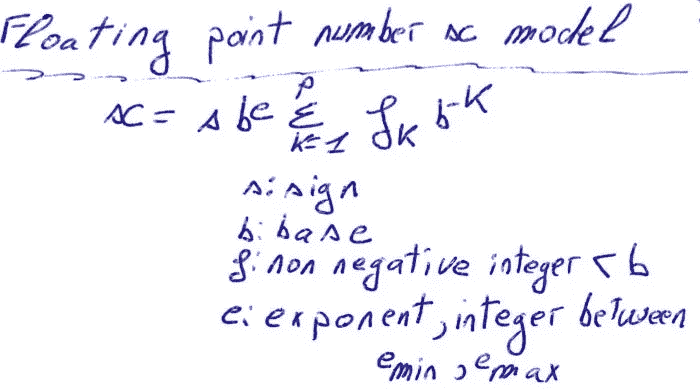 Floating point number x model
x = s b^e Σ_{k=1}^{p} f_k b^{-k}
s: sign
b: base
f: non negative integer < b
e: exponent, integer between
e_min, e_max